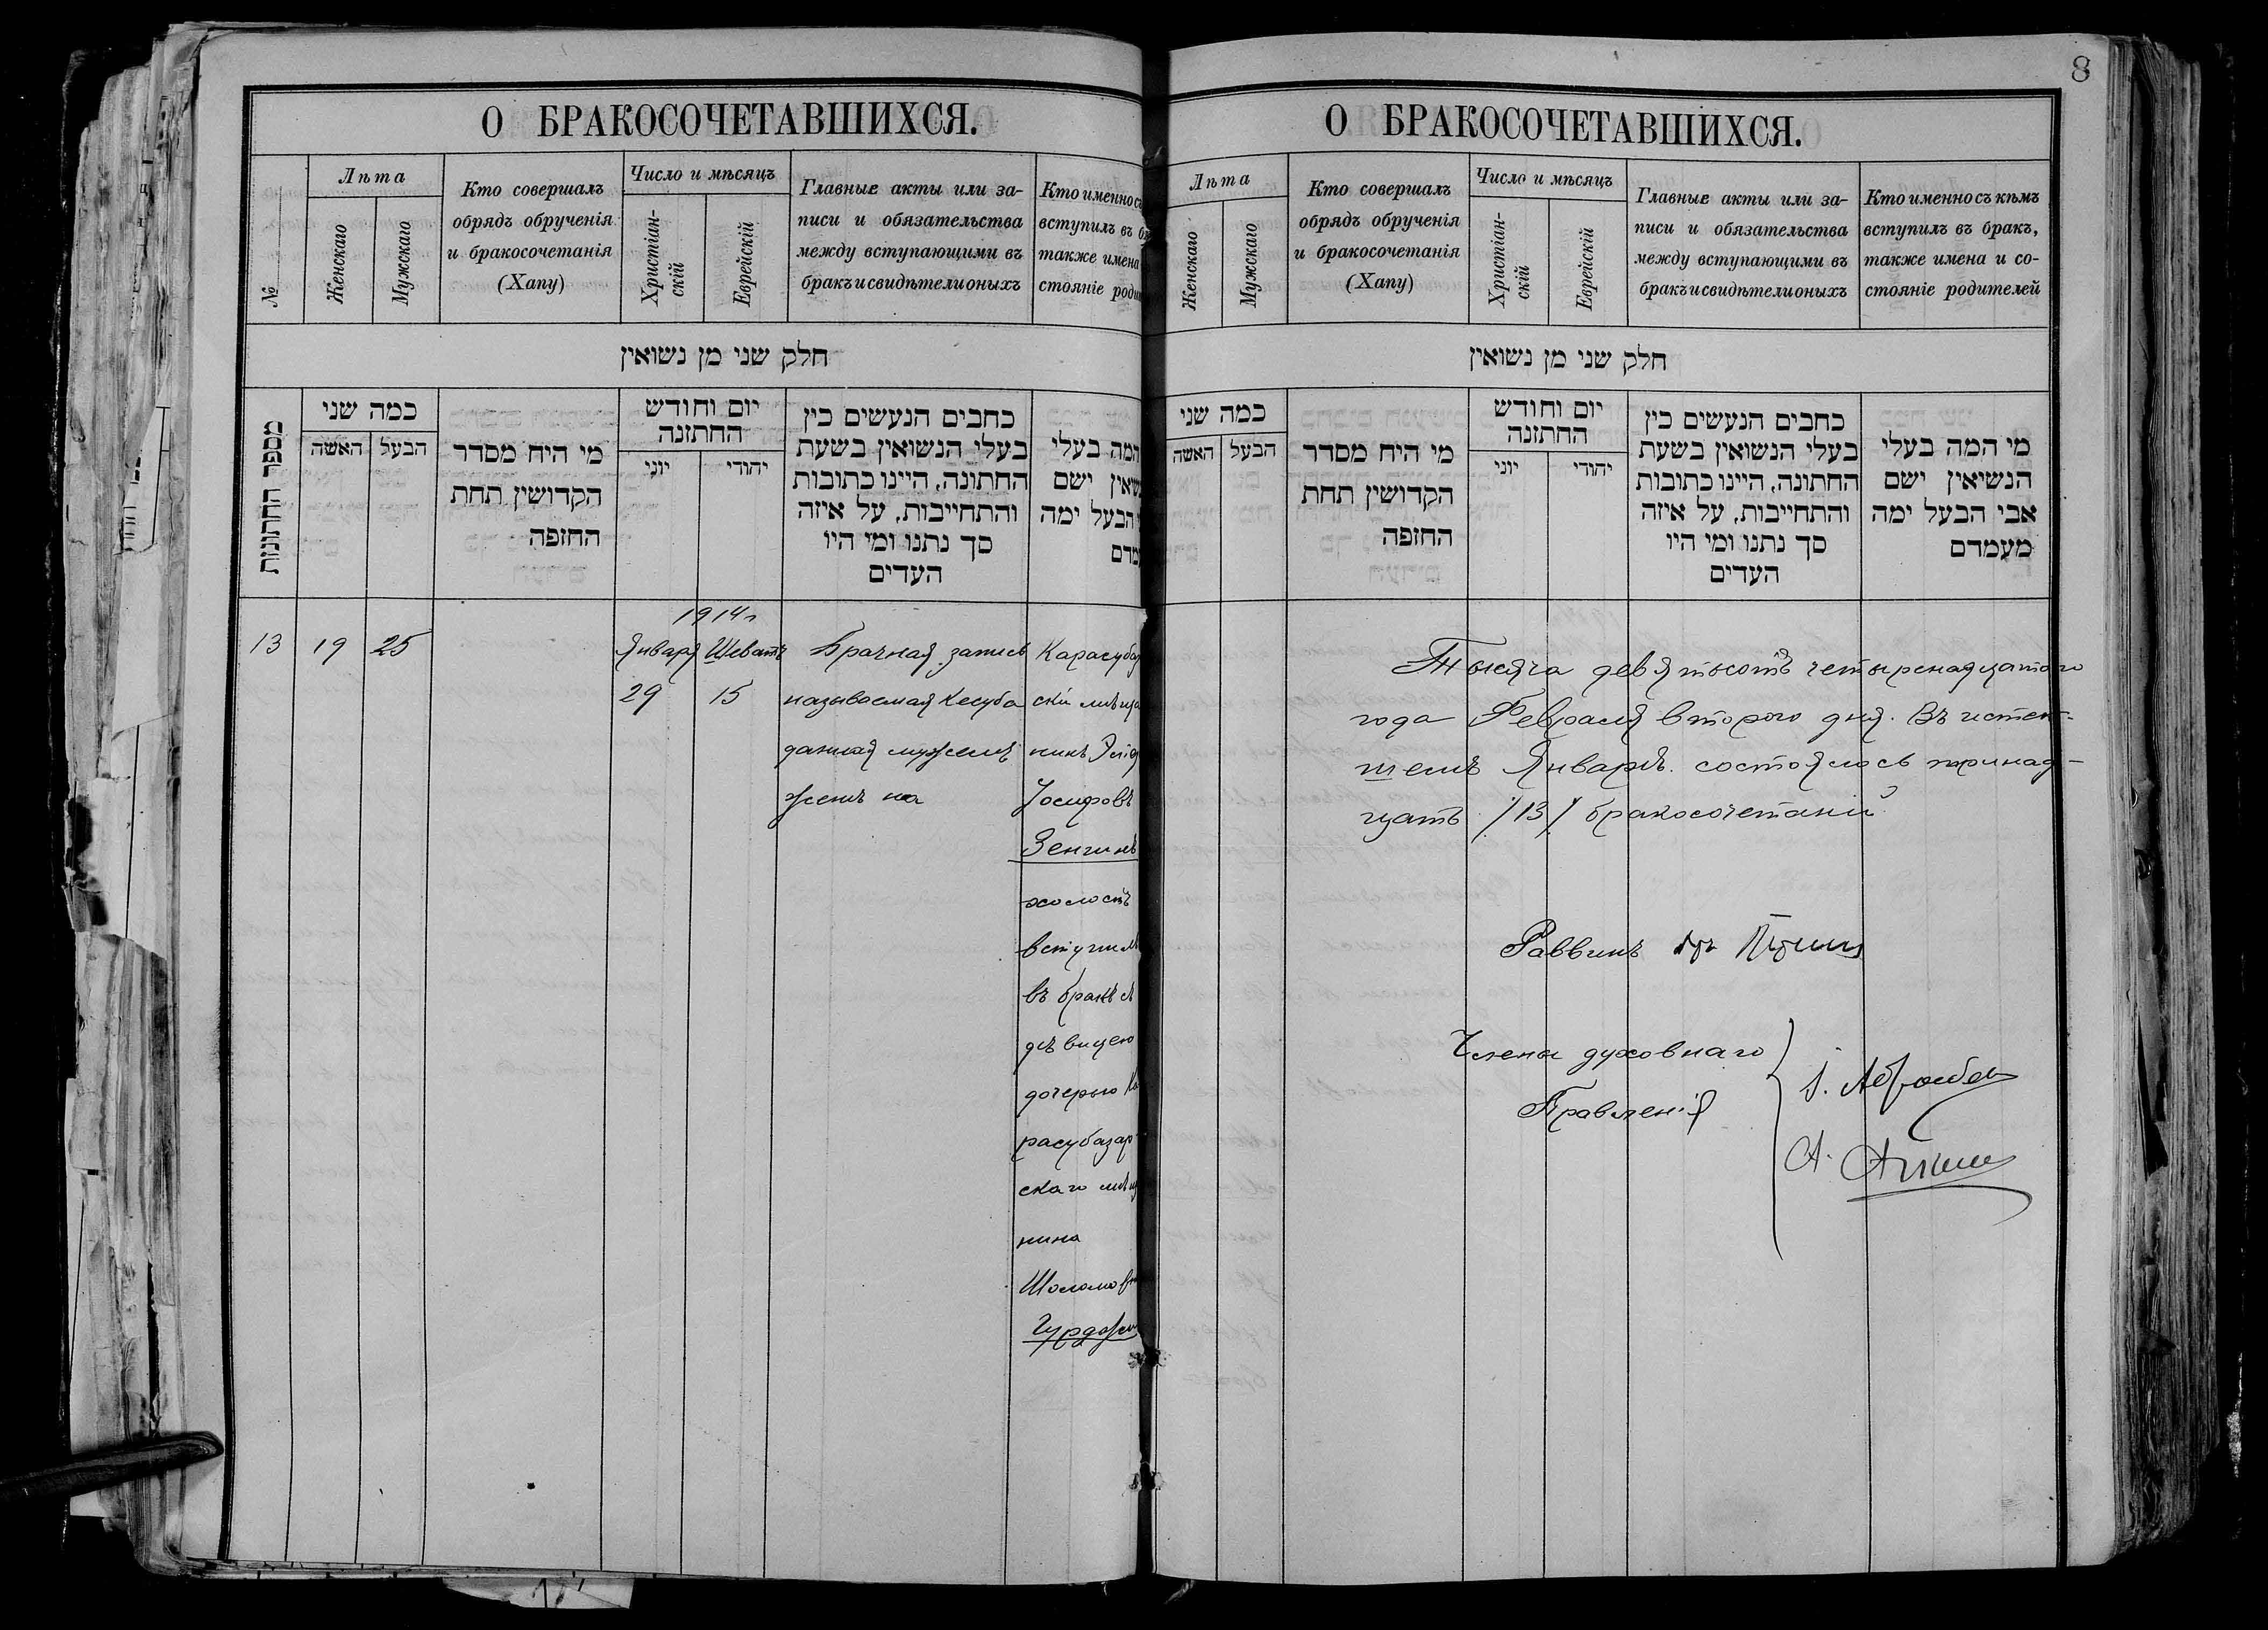 8
О БРАКОСОЧЕТАВШИХСЯ.
№
Лѣта
Женскаго
Мужскаго
Кто совершалъ
обрядъ обрученія
и бракосочетанія
(Хапу)
Число и мѣсяцъ
Христіан-
скій
Еврейскій
Главные акты или за-
писи и обязательства
между вступающими въ
бракъ и свидѣтели оныхъ
Кто именно съ
вступилъ въ б
также имена
стояніе роди
חלק שני מן נשואין
מספר החתונות
כמה שני
האשה
הבעל
מי היח מסדר
הקדושין תחת
החזפה
יום וחודש
החתזנה
יוני
יהודי
כחבים הנעשים כין
בעלי הנשואין בשעת
החתונה, היינו כתובות
והתחייבות, על איזה
סך נתנו ומי היו
העדים
המה בעלי
שאין ישם
הבעל ימה
מדם
1914 г
13 19 25
Января Шеватъ
29 15
Брачная запись
называемая Кесуба
данная мужемъ
женѣ на
Карасубаз
скій мѣща
нинъ
Іосифовъ
Зенгинъ
холостъ
вступилъ
въ бракъ съ
дѣвицею
дочерью Ка
расубазар
скаго мѣщ
нина
Шоломов
Гурдж
О БРАКОСОЧЕТАВШИХСЯ.
Лѣта
Женскаго
Мужскаго
Кто совершалъ
обрядъ обрученія
и бракосочетанія
(Хапу)
Число и мѣсяцъ
Христіан-
скій
Еврейскій
Главные акты или за-
писи и обязательства
между вступающими въ
бракъ и свидѣтели оныхъ
Кто именно съ кѣмъ
вступилъ въ бракъ,
также имена и со-
стояніе родителей
חלק שני מן נשואין
כמה שני
האשה
הבעל
מי היח מסדר
הקדושין תחת
החזפה
יום וחודש
החתזנה
יוני
יהודי
כחבים הנעשים כין
בעלי הנשואין בשעת
החתונה, היינו כתובות
והתחייבות, על איזה
סך נתנו ומי היו
העדים
מי המה בעלי
הנשיאין ישם
אבי הבעל ימה
מעמדם
Тысяча девятьсотъ четырнадцатаго
года Февраля второго дня. Въ истек-
шемъ Январѣ состоялось тринад-
цать /13/ бракосочетаній
Раввинъ
Члены духовнаго
Правленія